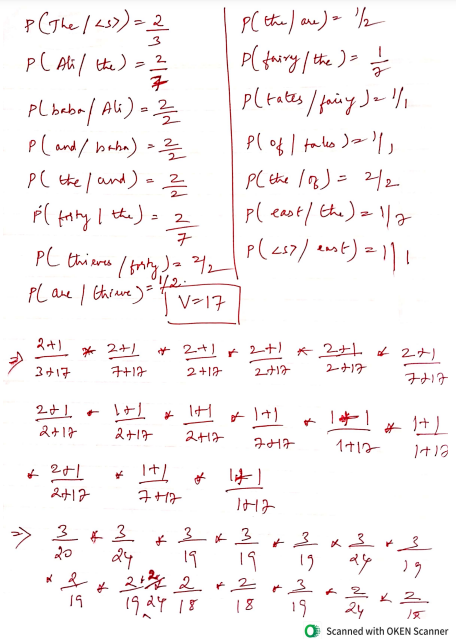 P(The/<s>) = 2/3
P(Ali/the) = 2/7
P(baba/Ali) = 2/2
P(and/baba) = 2/2
P(the/and) = 2/2
P(forty|the) = 2/7
P(thieves/forty) = 2/2
P(are/thieve) = 1/2.
V=17
P(the/are) = 1/2
P(fairy/the) = 1/7
P(tales/fairy) = 1/1
P(of/tales) = 1/1
P(the/of) = 2/2
P(east/the) = 1/7
P(<s>/east) = 1/1
⇒ 2+1/3+17 * 2+1/7+17 * 2+1/2+17 * 2+1/2+17 * 2+1/2+17 * 2+1/7+17
2+1/2+17 * 1+1/2+17 * 1+1/2+17 * 1+1/7+17 * 1+1/1+17 * 1+1/1+17
* 2+1/2+17 * 1+1/7+17 * 1+1/1+17
⇒ 3/20 * 3/24 * 3/19 * 3/19 * 3/19 * 3/24 * 3/19
* 2/19 * 2/19 * 2/24 * 2/18 * 2/18 * 3/19 * 2/24 * 2/18
Scanned with OKEN Scanner